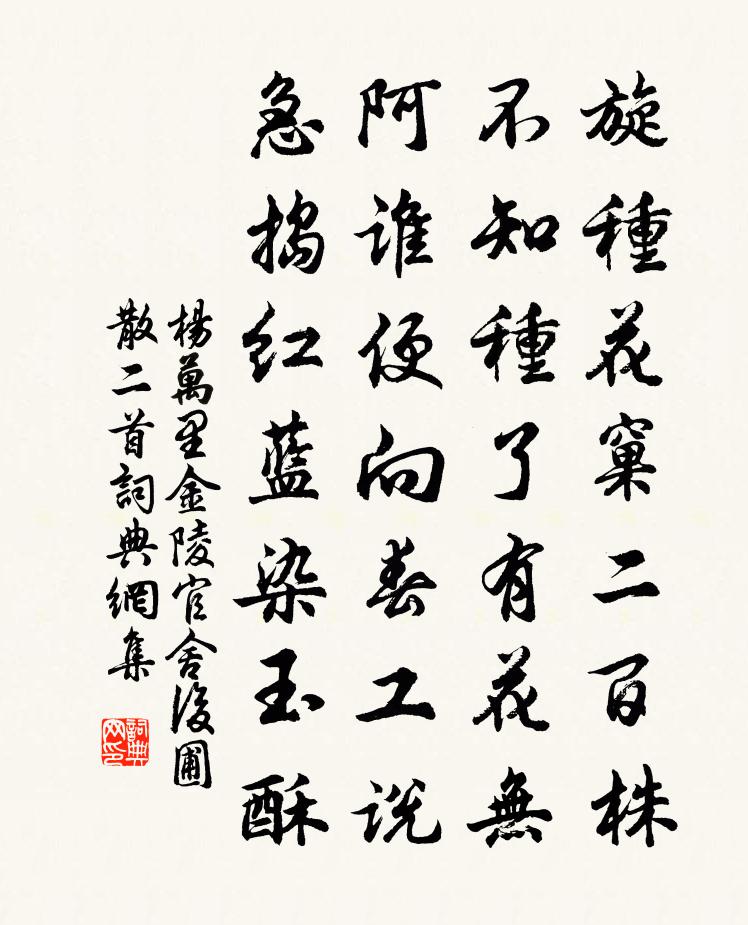 旋種花窠二百株
不知種了有花無
阿誰便向春工説
急搗红藍染玉酥
楊萬里金陵官舍後圃
散二首詞典網集
詞典網印